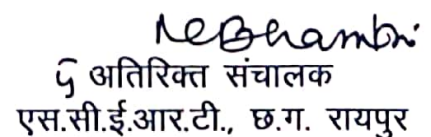 अतिरिक्त संचालक
एस.सी.ई.आर.टी., छ.ग. रायपुर